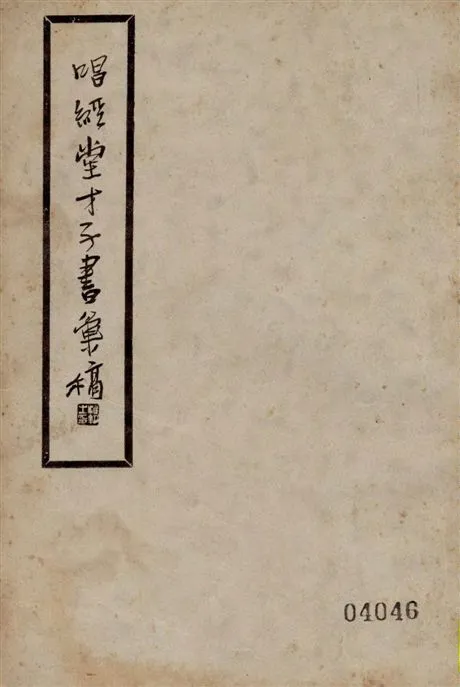 唱經堂才子書彙稿
04046